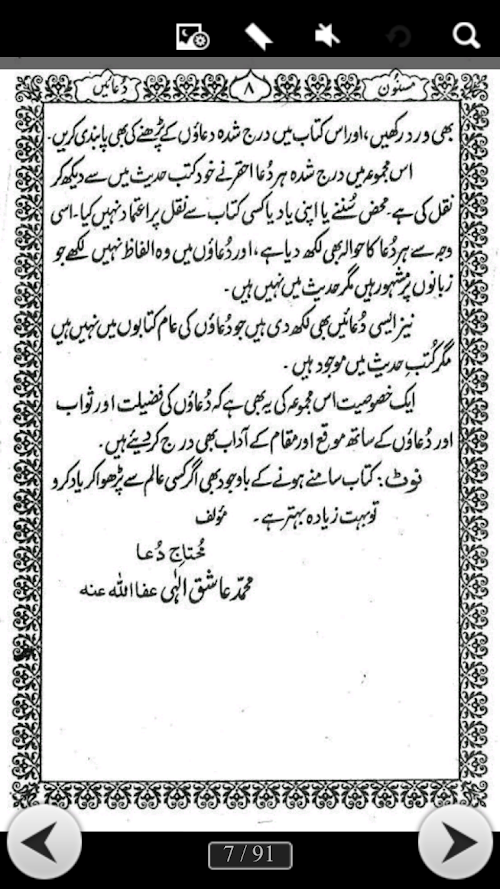 مسنون ۸ دُعائیں
بھی ورد رکھیں، اور اس کتاب میں درج شدہ دعاؤں کے پڑھنے کی بھی پابندی کریں۔
اس مجموعہ میں درج شدہ ہر دُعا احقر نے خود کتب حدیث میں سے دیکھ کر
نقل کی ہے۔ محض سُننے یا اپنی یاد یا کسی کتاب سے نقل پر اعتماد نہیں کیا۔ اسی
وجہ سے ہر دُعا کا حوالہ بھی لکھ دیا ہے، اور دُعاؤں میں وہ الفاظ نہیں لکھے جو
زبانوں پر مشہور ہیں مگر حدیث میں نہیں ہیں۔
نیز ایسی دُعائیں بھی لکھ دی ہیں جو دُعاؤں کی عام کتابوں میں نہیں ہیں
مگر کُتب حدیث میں موجود ہیں۔
ایک خصوصیت اس مجموعہ کی یہ بھی ہے کہ دُعاؤں کی فضیلت اور ثواب
اور دُعاؤں کے ساتھ موقع اور مقام کے آداب بھی درج کر دیئے ہیں۔
نوٹ: کتاب سامنے ہونے کے باوجود بھی اگر کسی عالم سے پڑھوا کر یاد کرو
تو بہت زیادہ بہتر ہے۔ مؤلف
مُحتاجِ دُعا
محمّد عاشق الٰہی عفا اللہ عنہ
7 / 91